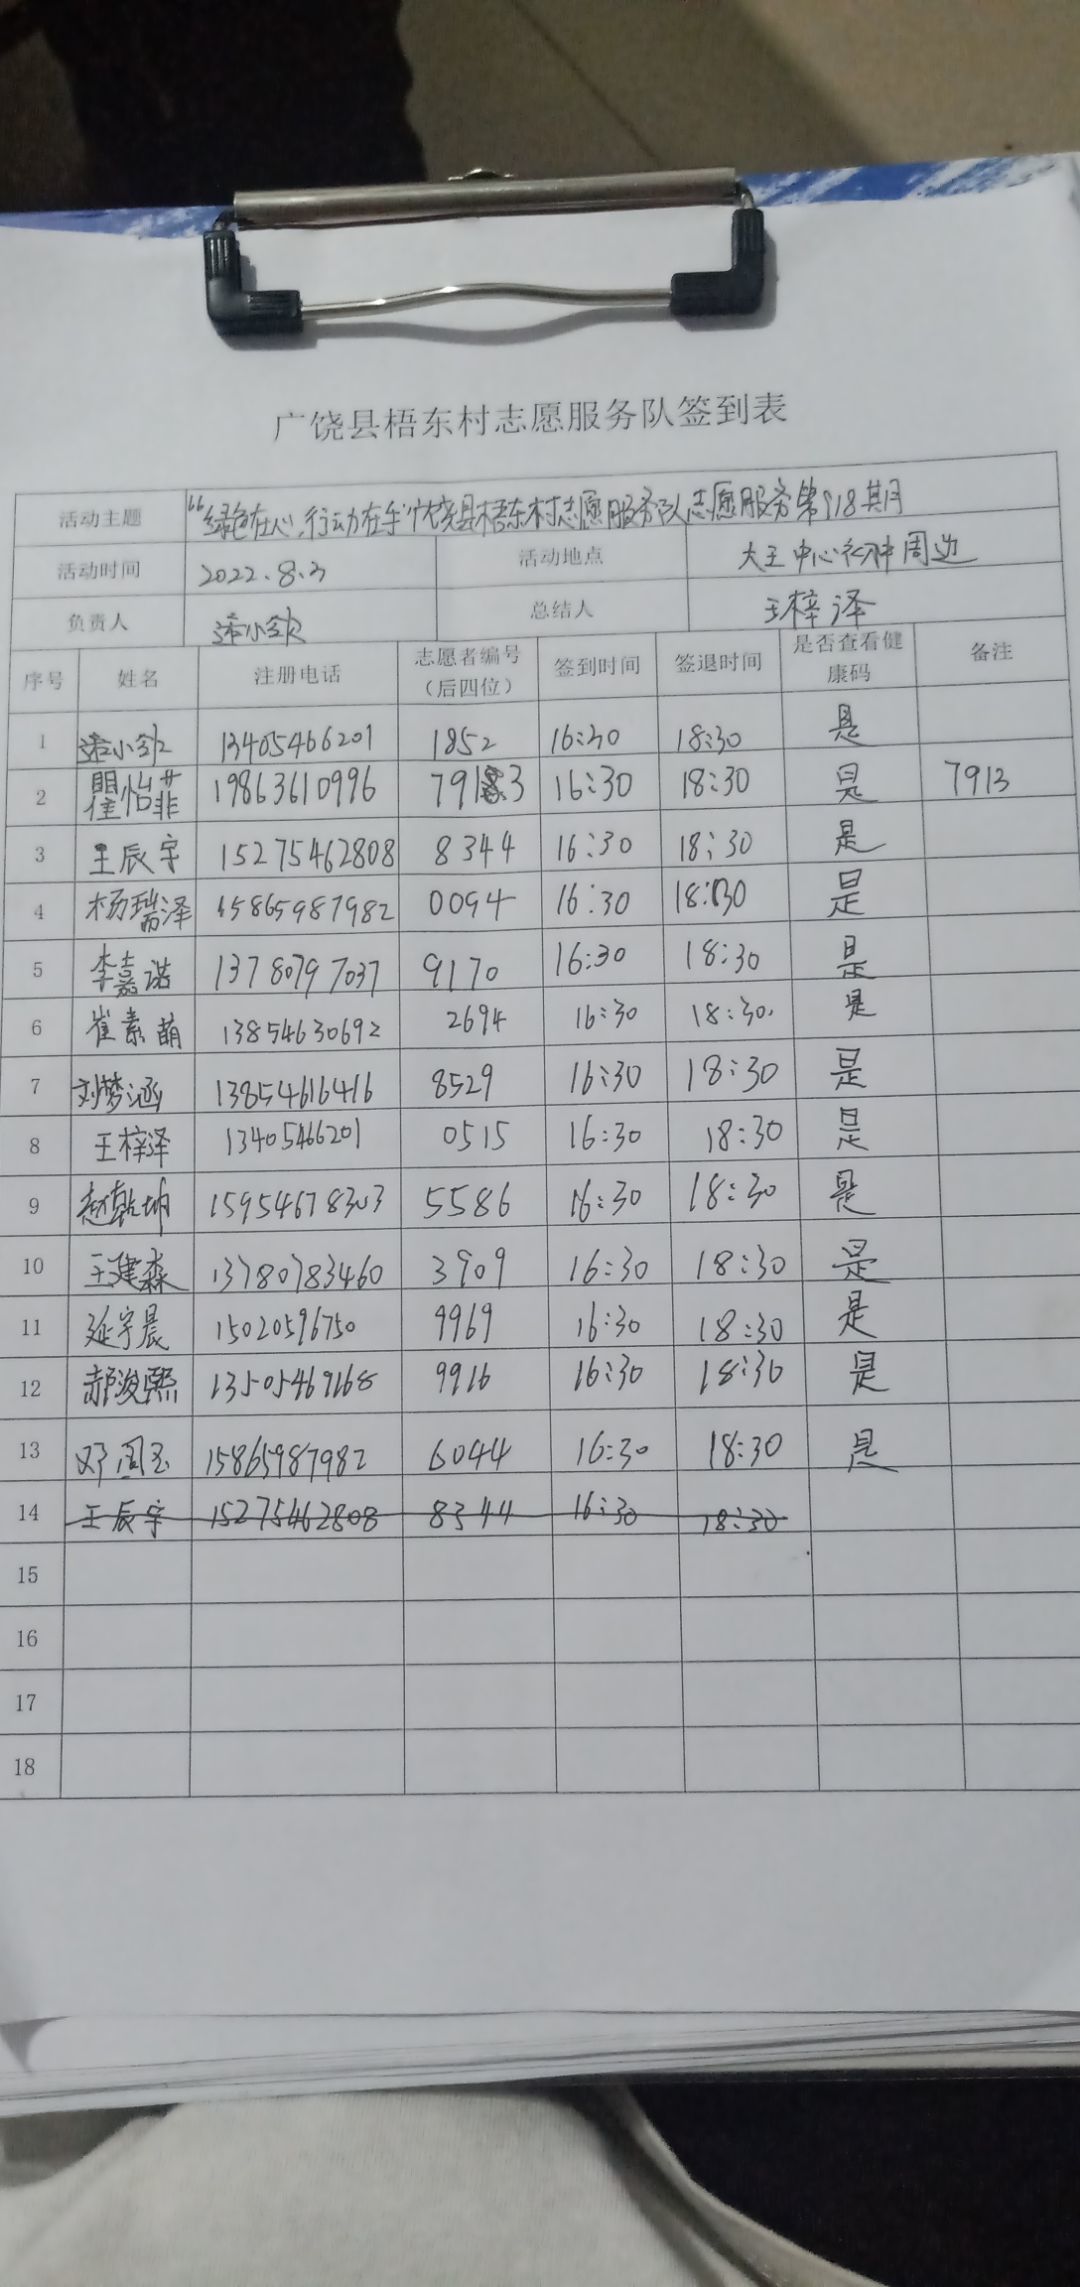 广饶县梧东村志愿服务队签到表
活动主题 “绿色在心,行动在手”广饶县梧东村志愿服务队志愿服务第918期
活动时间 2022.8.3 活动地点 大王中心社神周边
负责人 小 总结人 王梓泽
序号 姓名 注册电话 志愿者编号（后四位） 签到时间 签退时间 是否查看健康码 备注
1 小 13405466201 1852 16:30 18:30 是
2 瞿怡菲 19863610996 791 3 16:30 18:30 是 7913
3 王辰宇 15275462808 8344 16:30 18:30 是
4 杨瑞泽 15865987982 0094 16:30 18:30 是
5 李嘉诺 13780797037 9170 16:30 18:30 是
6 崔素萌 13854630692 2694 16:30 18:30. 是
7 刘梦涵 13854616416 8529 16:30 18:30 是
8 王梓泽 13405466201 0515 16:30 18:30 是
9 赵乾坤 15954678303 5586 16:30 18:30 是
10 王建森 13780783460 3909 16:30 18:30 是
11 延宇晨 15020596750 9969 16:30 18:30 是
12 郝浚熙 13505469168 9916 16:30 18:30 是
13 邓周玉 15865987982 6044 16:30 18:30 是
14 王辰宇 15275462808 8344 16:30 18:30
15
16
17
18